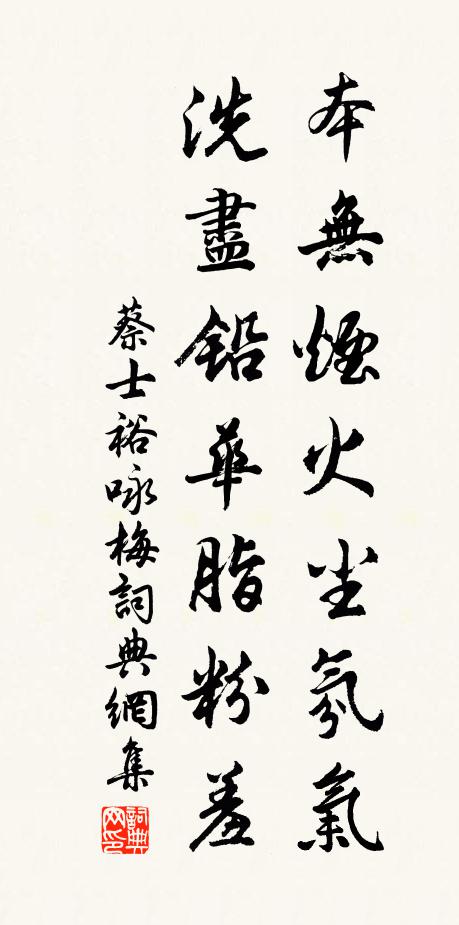 本無煙火尘氛氣
洗盡鉛華脂粉羞
蔡士裕咏梅詞典網集
詞典网印